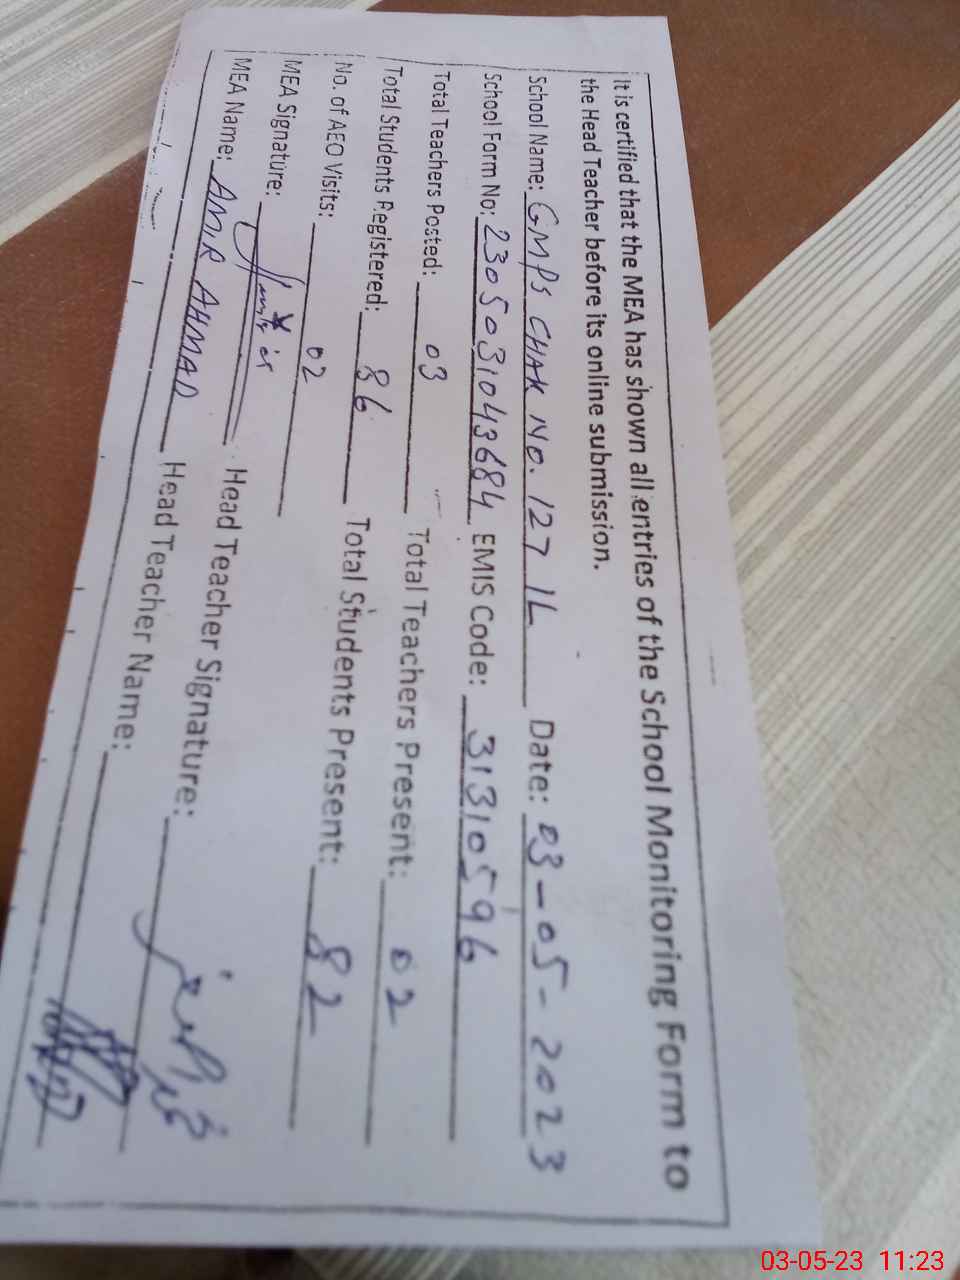 It is certified that the MEA has shown all entries of the School Monitoring Form to
the Head Teacher before its online submission.
School Name: GMPS CHAK NO. 127 1L Date: 03-05-2023
School Form No: 2305031043684 EMIS Code: 31310596
Total Teachers Posted: 03 Total Teachers Present: 02
Total Students Registered: 86 Total Students Present: 82
No. of AEO Visits: 02
MEA Signature: Head Teacher Signature:
MEA Name: AMIR AHMAD Head Teacher Name:
03-05-23 11:23